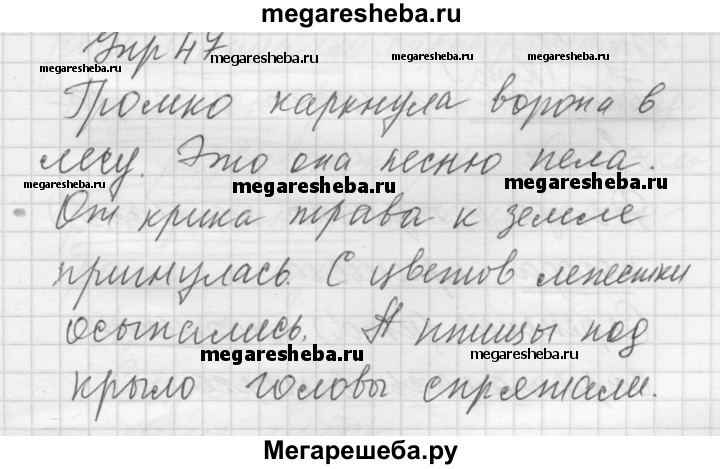 megaresheba.ru
Упр 47
megaresheba.ru megaresheba.ru megaresheba.ru
Громко каркнула ворона в
лесу. Это она песню пела.
megaresheba.ru megaresheba.ru megaresheba.ru
От крика трава к земле
пригнулась. С цветов лепестки
осыпались. А птицы под
megaresheba.ru megaresheba.ru
крыло головы спрятали.
Мегарешеба.ру